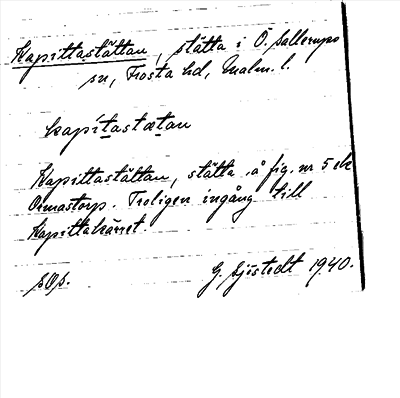 Kapittastättan, stätta i Ö. Sallerups
sn, Frosta hd, Malm. l.
kapítastætan
Kapittastättan, stätta å fig. nr 5 ek
Ormastorp. Troligen ingång till
Kapittakärret
G. Sjöstedt 1940.